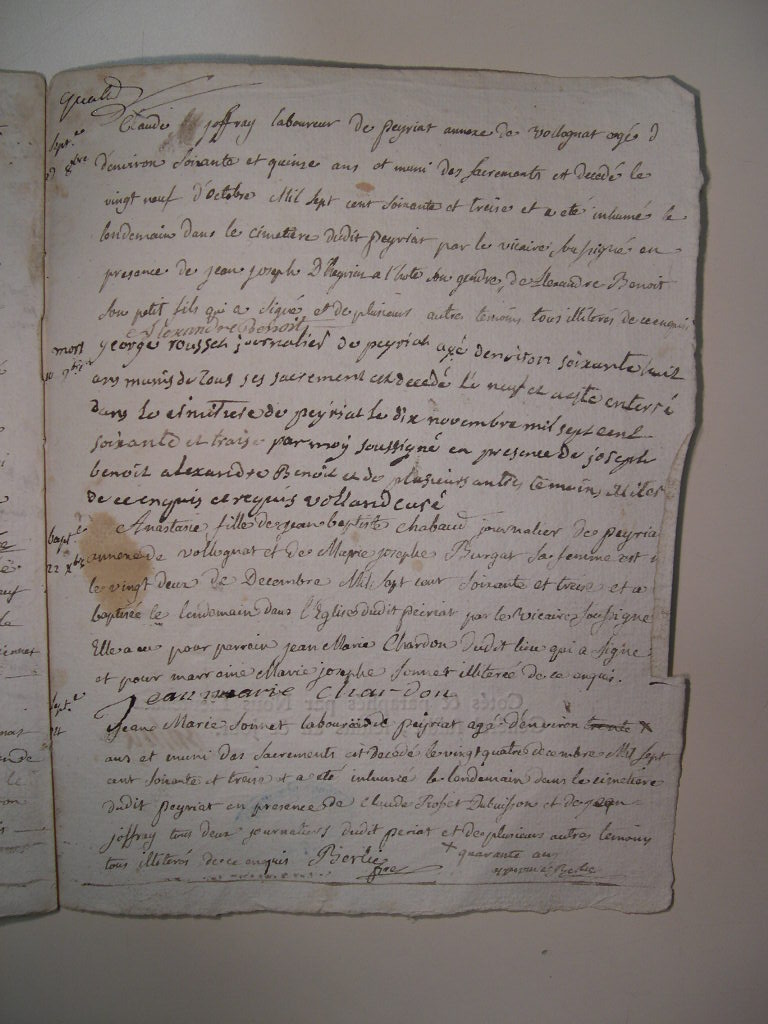 Claude joffray laboureur de peyriat annexe de vollognat agé d
d'environ soixante et quinze ans et muni des sacrements est decedé le
vingt neuf d'octobre Mil sept cent soixante et treise et a eté inhumé le
lendemain dans le cimetiere dudit peyriat par le vicaire soussigné en
presence de jean joseph a l'hote son gendre, de Alexandre Benoit
son petit fils qui a signé et de plusieurs autres temoins tous illiteres de ce enquis
Alexandre Benoit
mort
george rousset journalier de peyriat agé denviron soixante huit
ans munis de tous ses sacrement est decedé le neuf et a este enterré
dans le cimitiere de peyriat le dix novembre mil sept cent
soixante et traise par moy soussigné en presence de joseph
benoit alexandre Benoit et de plusieurs autres temoins
de ce enquis et requis volland curé
bapt
22 xbre
Anastasie fille de jean baptiste Chabaud journalier de peyria
annexe de vollognat et de Marie josephe Burgat sa femme est
le vingt deux de Decembre Mil sept cent soixante et treise et a
baptisée le lendemain dans l'Eglise dudit peyriat par le Vicaire soussigne
Elle a eu pour parrain jean Marie Chardon dudit lieu qui a signe
et pour marraine Marie josephe Sonnet illiterée de ce enquis
Jean marie Chardon
Sept.
24
Jean Marie Sonnet laboureur peyriat agé d'environ trente x
ans et muni des sacrements est decedé le vingt quatre decembre Mil sept
cent soixante et treise et a eté inhumé le lendemain dans le cimetiere
dudit peyriat en presence de Claude et de jean
joffray tous deux journaliers dudit periat et de plusieurs autres temoins
tous illiteres de ce enquis Berlie
+ quarante ans
approuvé Berlie